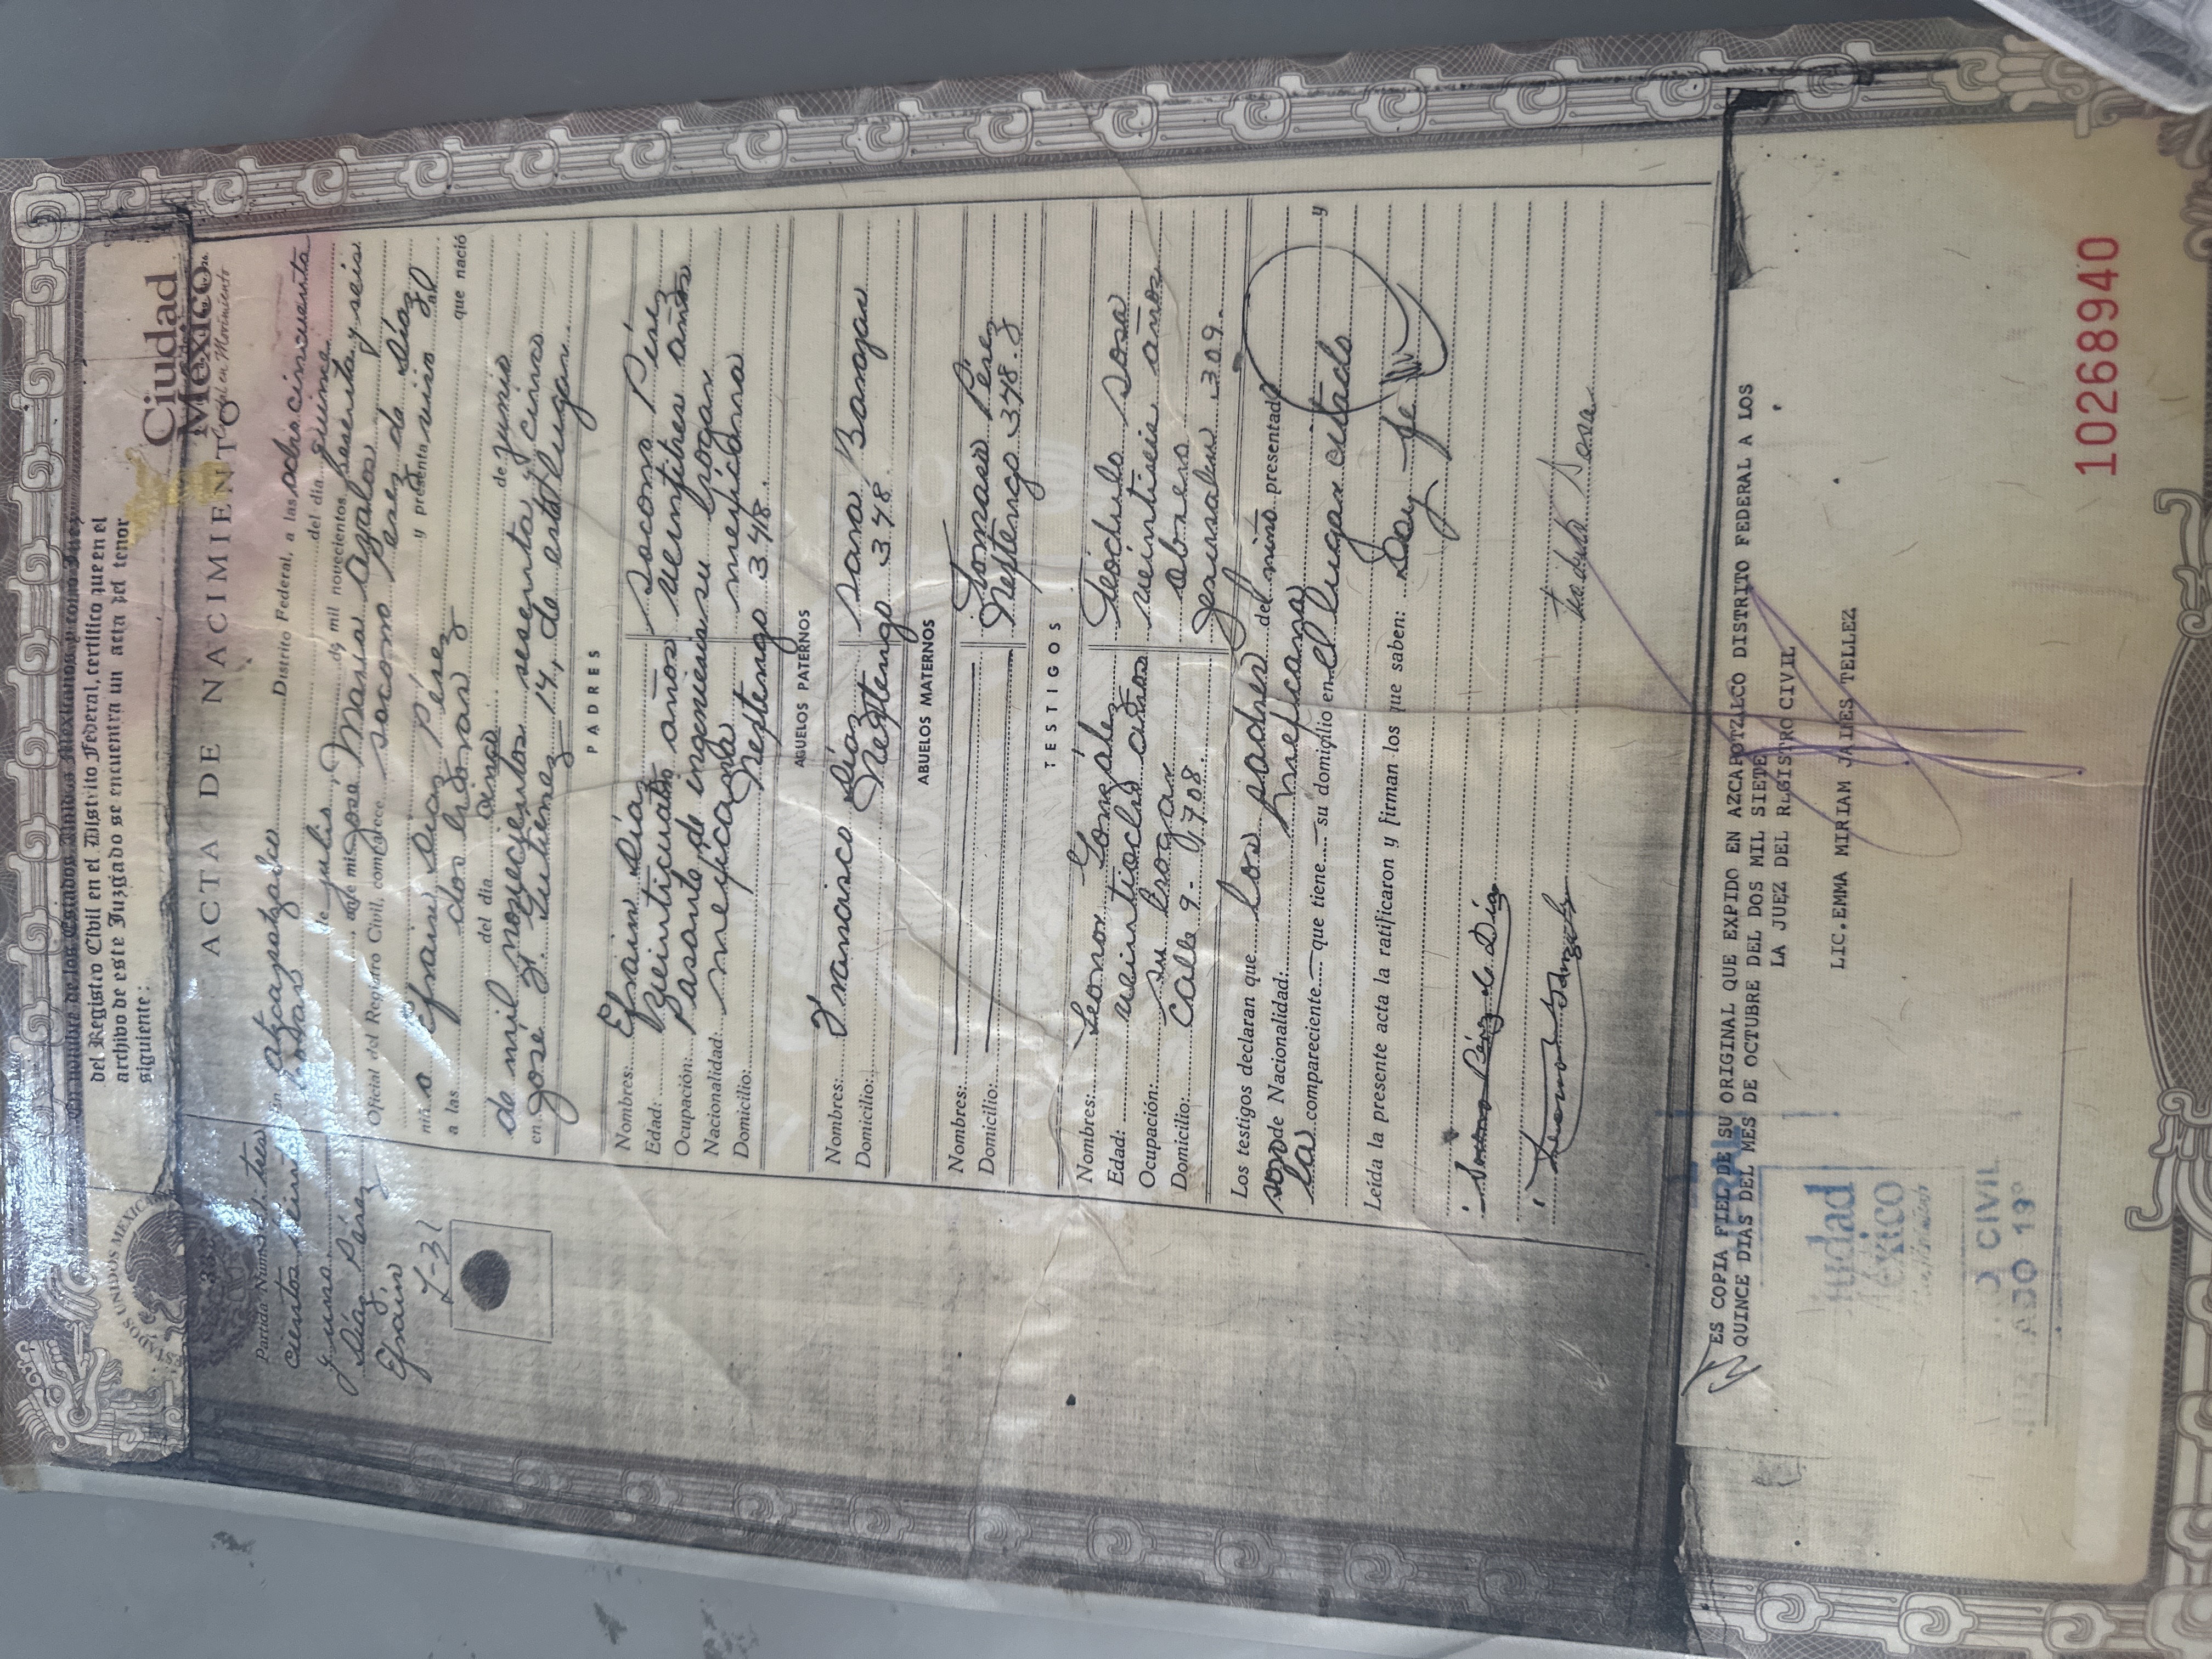 En nombre de los Estados Unidos Mexicanos y como Juez
del Registro Civil en el Distrito Federal, certifico que en el
archivo de este Juzgado se encuentra un acta del tenor
siguiente:
ESTADOS UNIDOS MEXICANOS
Ciudad
México
Capital en Movimiento
ACTA DE NACIMIENTO
Partida Núm. tres
cientos treinta
y uno.
Díaz Pérez
Efraín
L-31
En Atzcapotzalco Distrito Federal, a las ocho cincuenta
horas del día quince
de julio de mil novecientos sesenta y seis
ante mí José María Ayala
Oficial del Registro Civil, comparece Socorro Pérez de Díaz
y presenta vivo al
niño Efraín Díaz Pérez que nació
a las dos horas
del día cinco de junio
de mil novecientos sesenta y cinco
en José 14, de este lugar.
PADRES
Nombres: Efraín Díaz Socorro Pérez
Edad: Veinticuatro años veintitres años
Ocupación: Pasante de ingeniería su hogar
Nacionalidad: mexicana mexicana
Domicilio: Neptengo 348.
ABUELOS PATERNOS
Nombres: Francisco Díaz Sara Barajas
Domicilio: Neptengo 348.
ABUELOS MATERNOS
Nombres: Tomasa Pérez
Domicilio: Neptengo 348.
TESTIGOS
Nombres: Leonor González Teódulo Sosa
Edad: veintiocho años veintiseis años
Ocupación: su hogar obrero
Domicilio: Calle 9. 1708. Jerusalen 309.
Los testigos declaran que los padres del niño presentado
son de Nacionalidad: mexicana y
la compareciente que tiene su domicilio en el lugar citado
Leída la presente acta la ratificaron y firman los que saben: Doy fe
Socorro Pérez de Díaz
Leonor González
Teodulo Sosa
ES COPIA FIEL DE SU ORIGINAL QUE EXPIDO EN AZCAPOTZLCO DISTRITO FEDERAL A LOS
QUINCE DIAS DEL MES DE OCTUBRE DEL DOS MIL SIETE
LA JUEZ DEL REGISTRO CIVIL
LIC.EMMA MIRIAM JAIMES TELLEZ
iudad
éxico
O CIVIL
ADO 19°
10268940